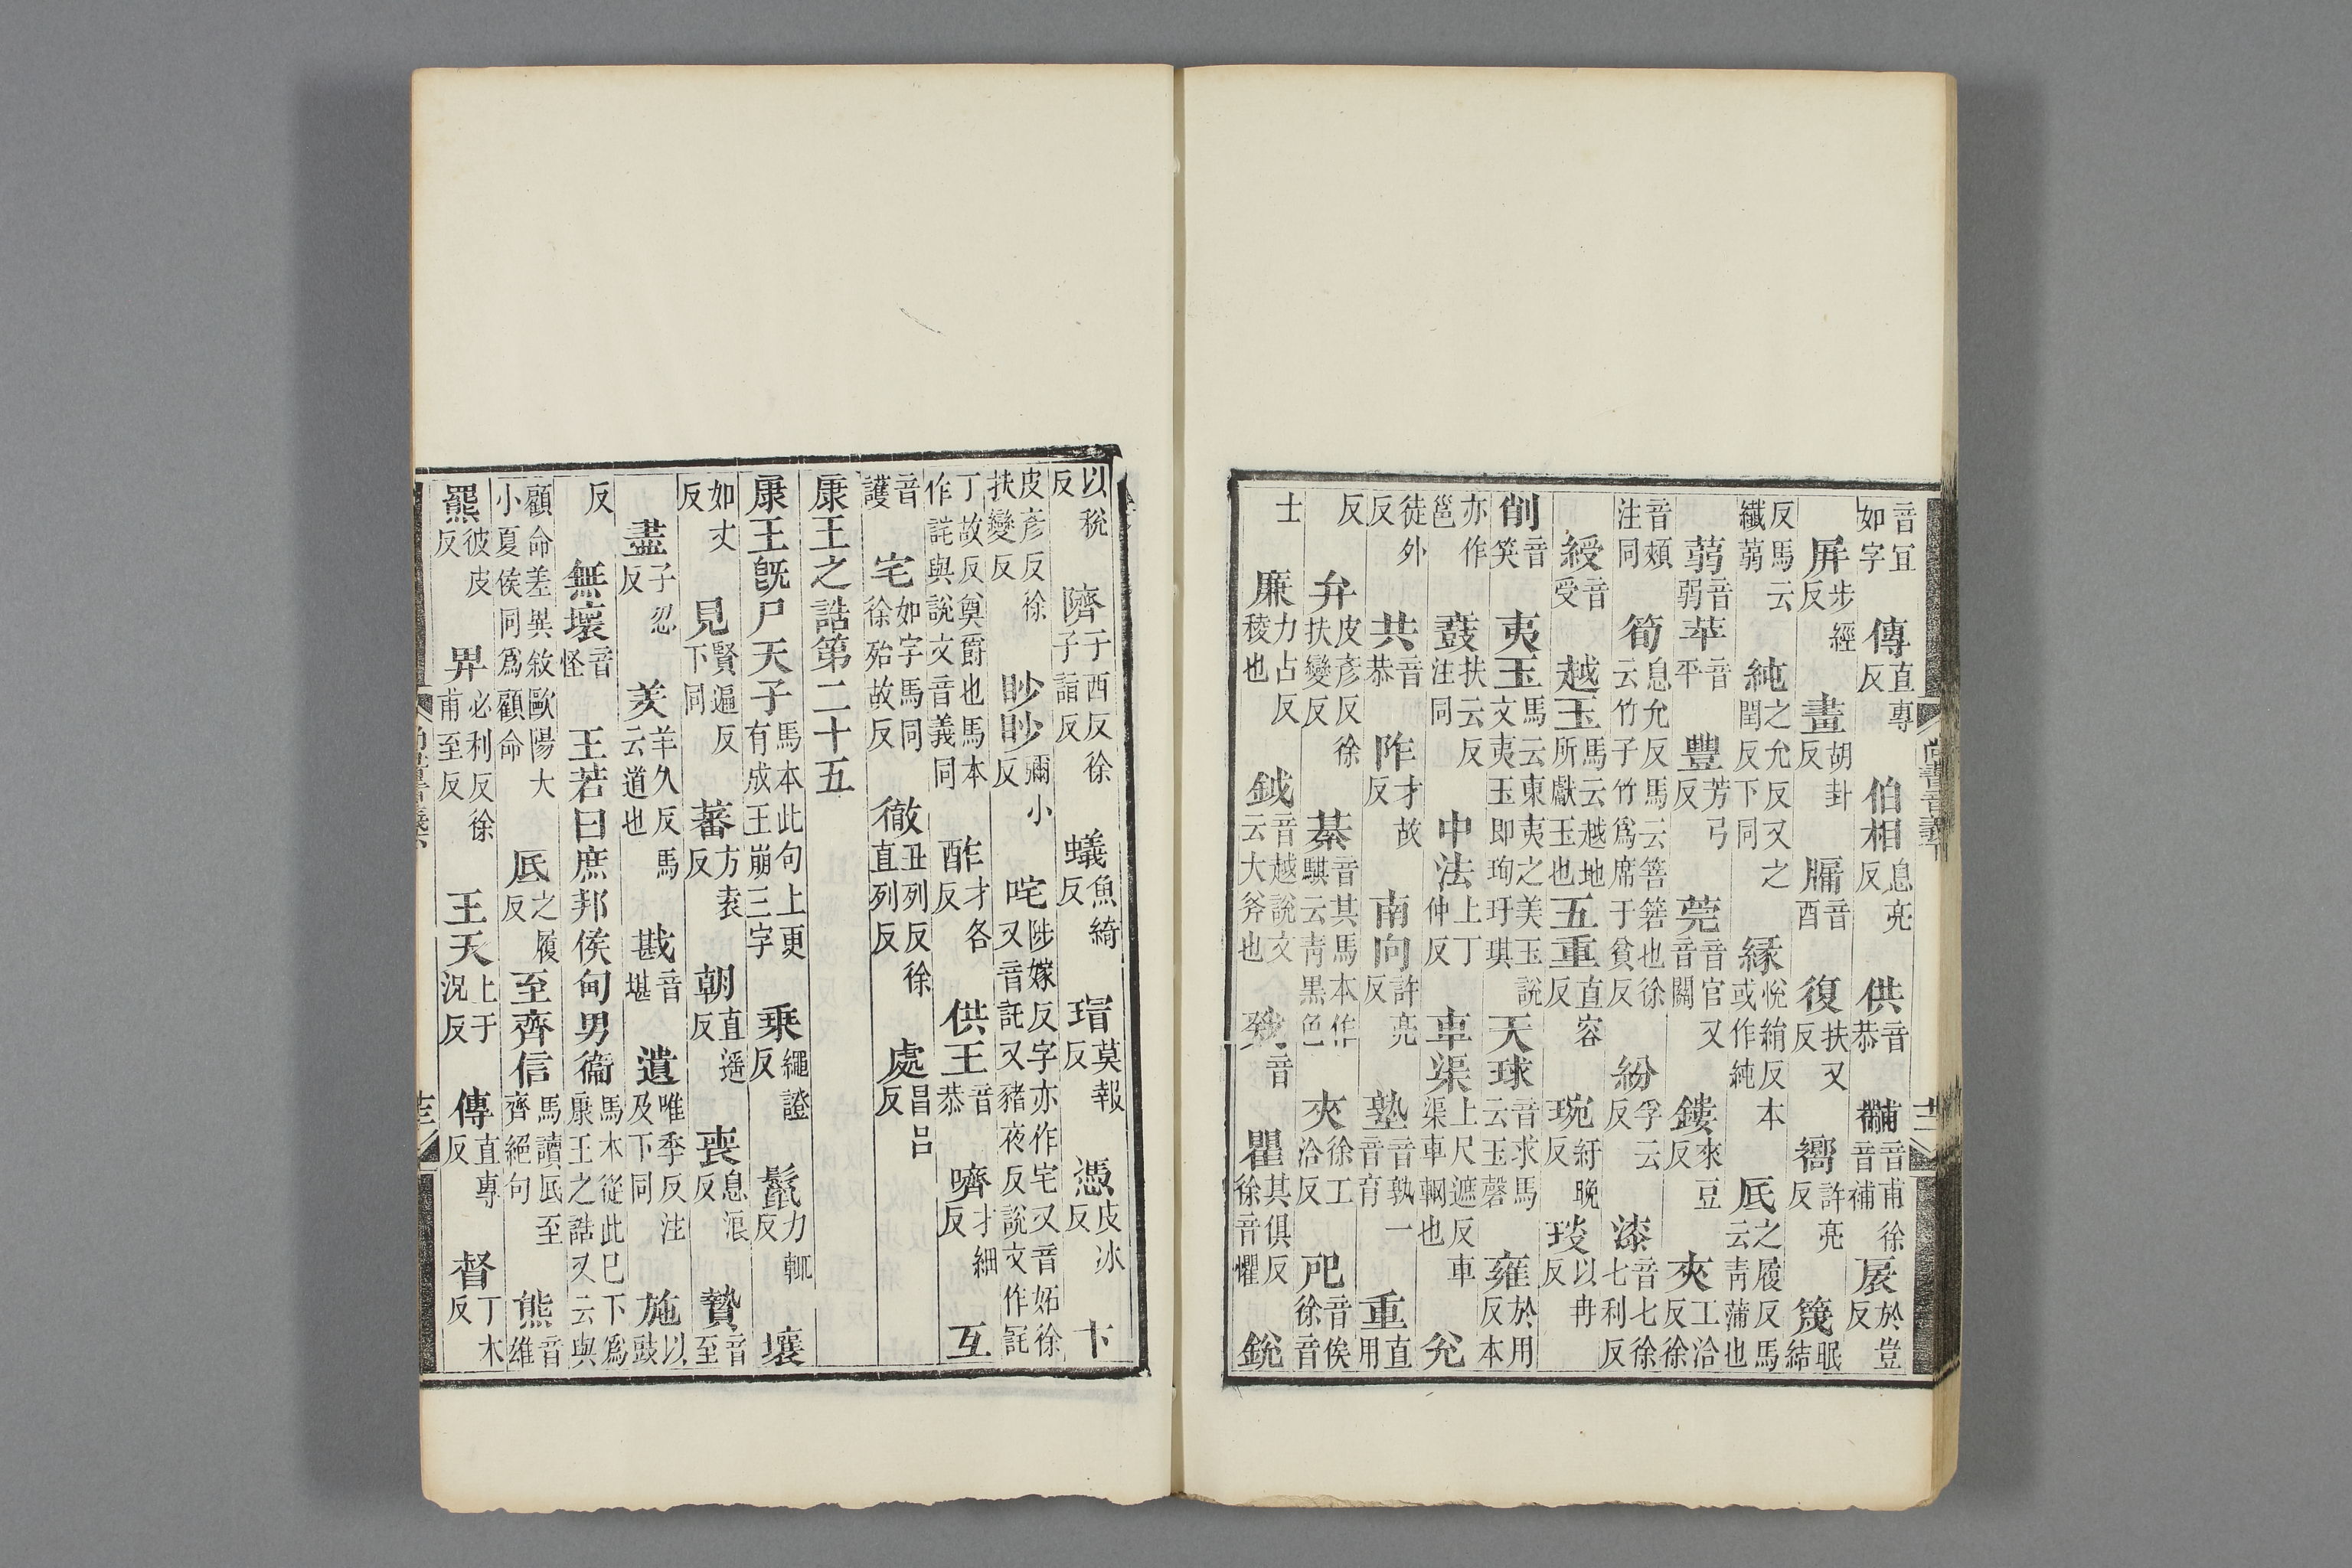 音冝如字傳直專反伯相息亮反供音恭黼音甫徐音補扆於豈反
屏步經反畫胡卦反牖音酉復扶又反嚮許亮反篾眠結
反馬云纖蒻純之允反又之閏反下同緣悅絹反本或作純底之履反馬云青蒲也
蒻音弱苹音平豐芳弓反莞音官又音關鏤來豆反夾工洽反徐
音頰注同筍息允反馬云箁箬也徐云竹子竹爲席于貧反紛孚云反漆音七徐七利反
綬音受越玉馬云越地所獻玉也五重直容反琬紆晚反琰以冉反
削音笑夷玉馬云東夷之美玉說文夷玉即珣玗琪天球音求馬云玉磬雍於用反本
亦作邕鼖扶云反注同中法上丁仲反車渠上尺遮反車渠車輞也兊
徒外反共音恭阼才故反南向許亮反塾音孰一音育重直用
反弁皮彥反徐扶變反綦音其馬本作騏云靑黑色夾徐工洽反戺音俟徐音
士廉力占反稜也鉞音越說文云大斧也戣音瞿其俱反徐音懼銳
尚書音義下
以稅反隮于西反徐子詣反蟻魚綺反瑁莫報反憑皮冰反卞
皮彥反徐扶變反眇眇彌小反咤陟嫁反字亦作宅又音妬徐又音託又豬夜反說文作詫
丁故反奠爵也馬本作詫與說文音義同酢才各反供王音恭嚌才細反互
音護宅如字馬同徐殆故反徹丑列反徐直列反處昌呂反
康王之誥第二十五
康王旣尸天子馬本此句上更有成王崩三字乗繩證反鬛力輒反壤
如丈反見賢遍反下同蕃方袁反朝直遥反喪息浪反贄音至
盡子忍反羑羊久反馬云道也戡音堪遺唯季反注及下同施以豉
反無壞音怪王若曰庶邦侯甸男衞馬本從此巳下爲康王之誥又云與
顧命差異敘歐陽大小夏侯同爲顧命底之履反至齊信馬讀底至齊絕句熊音維
羆彼皮反畀必利反徐甫至反王天上于況反傳直專反督丁木反